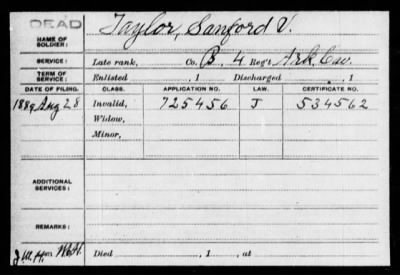 DEAD
NAME OF SOLDIER: Taylor, Sanford V.
SERVICE: Late rank, Co. B, 4 Reg't Ark. Cav.
TERM OF SERVICE: Enlisted , 1 Discharged , 1
DATE OF FILING. CLASS. APPLICATION NO. LAW. CERTIFICATE NO.
1889 Aug 28 Invalid, 725456 J 534562
Widow,
Minor,
ADDITIONAL SERVICES:
REMARKS:
Died , 1 , at